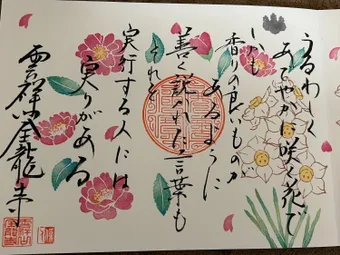 うるわしく
あでやかに咲く花で
しかも
香りの良いものが
あるように
善く説かれた言葉も
それを
実行する人には
実りがある
雲祥山金龍寺